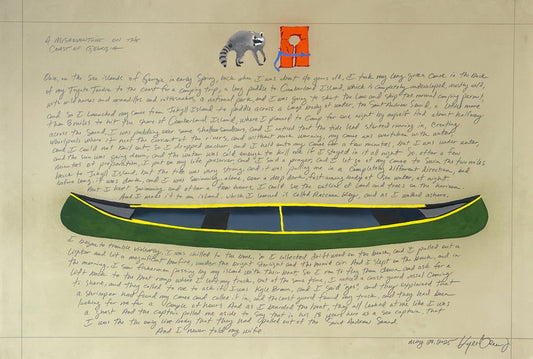 A MISADVENTURE ON THE
COAST OF GEORGIA
Once, on the Sea islands of Georgia in early Spring, back when I was about 40 years old, I took my long green canoe in the back
of my Toyota Tundra to the coast for a camping trip, a long paddle to Cumberland Island, which is completely undeveloped, mostly wild,
with wild horses and armadillos, and into a national park, and I was going to skirt the law and skip the normal camping permit.
And so I launched my canoe from Jekyll Island to paddle across a large body of water, the Saint Andrew Sound, a little more
than 8 miles to hit the shore of Cumberland Island, where I planned to camp for one night by myself. And about halfway
across the Sound, I was paddling over some shallow sandbars, and I noticed that the tide had started moving in, creating
whirlpools where it met the current of two rivers, and without much warning, my canoe was overtaken with the water,
and I could not bail out. So I dropped anchor, and I held onto my canoe for a few minutes, but I was under water,
and the sun was going down, and the water was cold enough to kill me if I stayed in it at night. So, after a few
minutes of pondering, I put on my life preserver and I said a prayer, and I let go of my canoe to swim the two miles
back to Jekyll Island, but the tide was very strong, and it was pulling me in a completely different direction, and
before long, it was dark, and I was swimming alone, over a deep dark, fast-moving body of cold water, at night.
And I kept swimming, and after a few hours, I could see the outline of land and trees on the horizon.
And I made it to an island, which I learned is called Raccoon Key, and as I walked ashore,
I began to tremble violently, I was chilled to the bone, so I collected driftwood on the beach, and I pulled out a
lighter and lit a magnificent bonfire, under the bright starlight and the humid air. And I slept on the beach, and in
the morning, I saw fishermen passing by my island with their boat. So I ran to flag them down, and ask for a
lift back to the boat ramp where I left my truck, but at the same time, I noticed a coast guard vessel coming
to shore, and they called to me to ask if I was Kyle Brown, and I said "yes," and they explained that
a shrimper had found my canoe and called it in, and the coast guard found my truck, and they had been
looking for me for a couple of hours. And as I boarded the boat, they all looked at me like I was
a ghost. And the captain pulled me aside to say that in his 18 years here as a sea captain, that
I was the only live body that they had ever pulled out of the Saint Andrew Sound.
And I never told my wife.